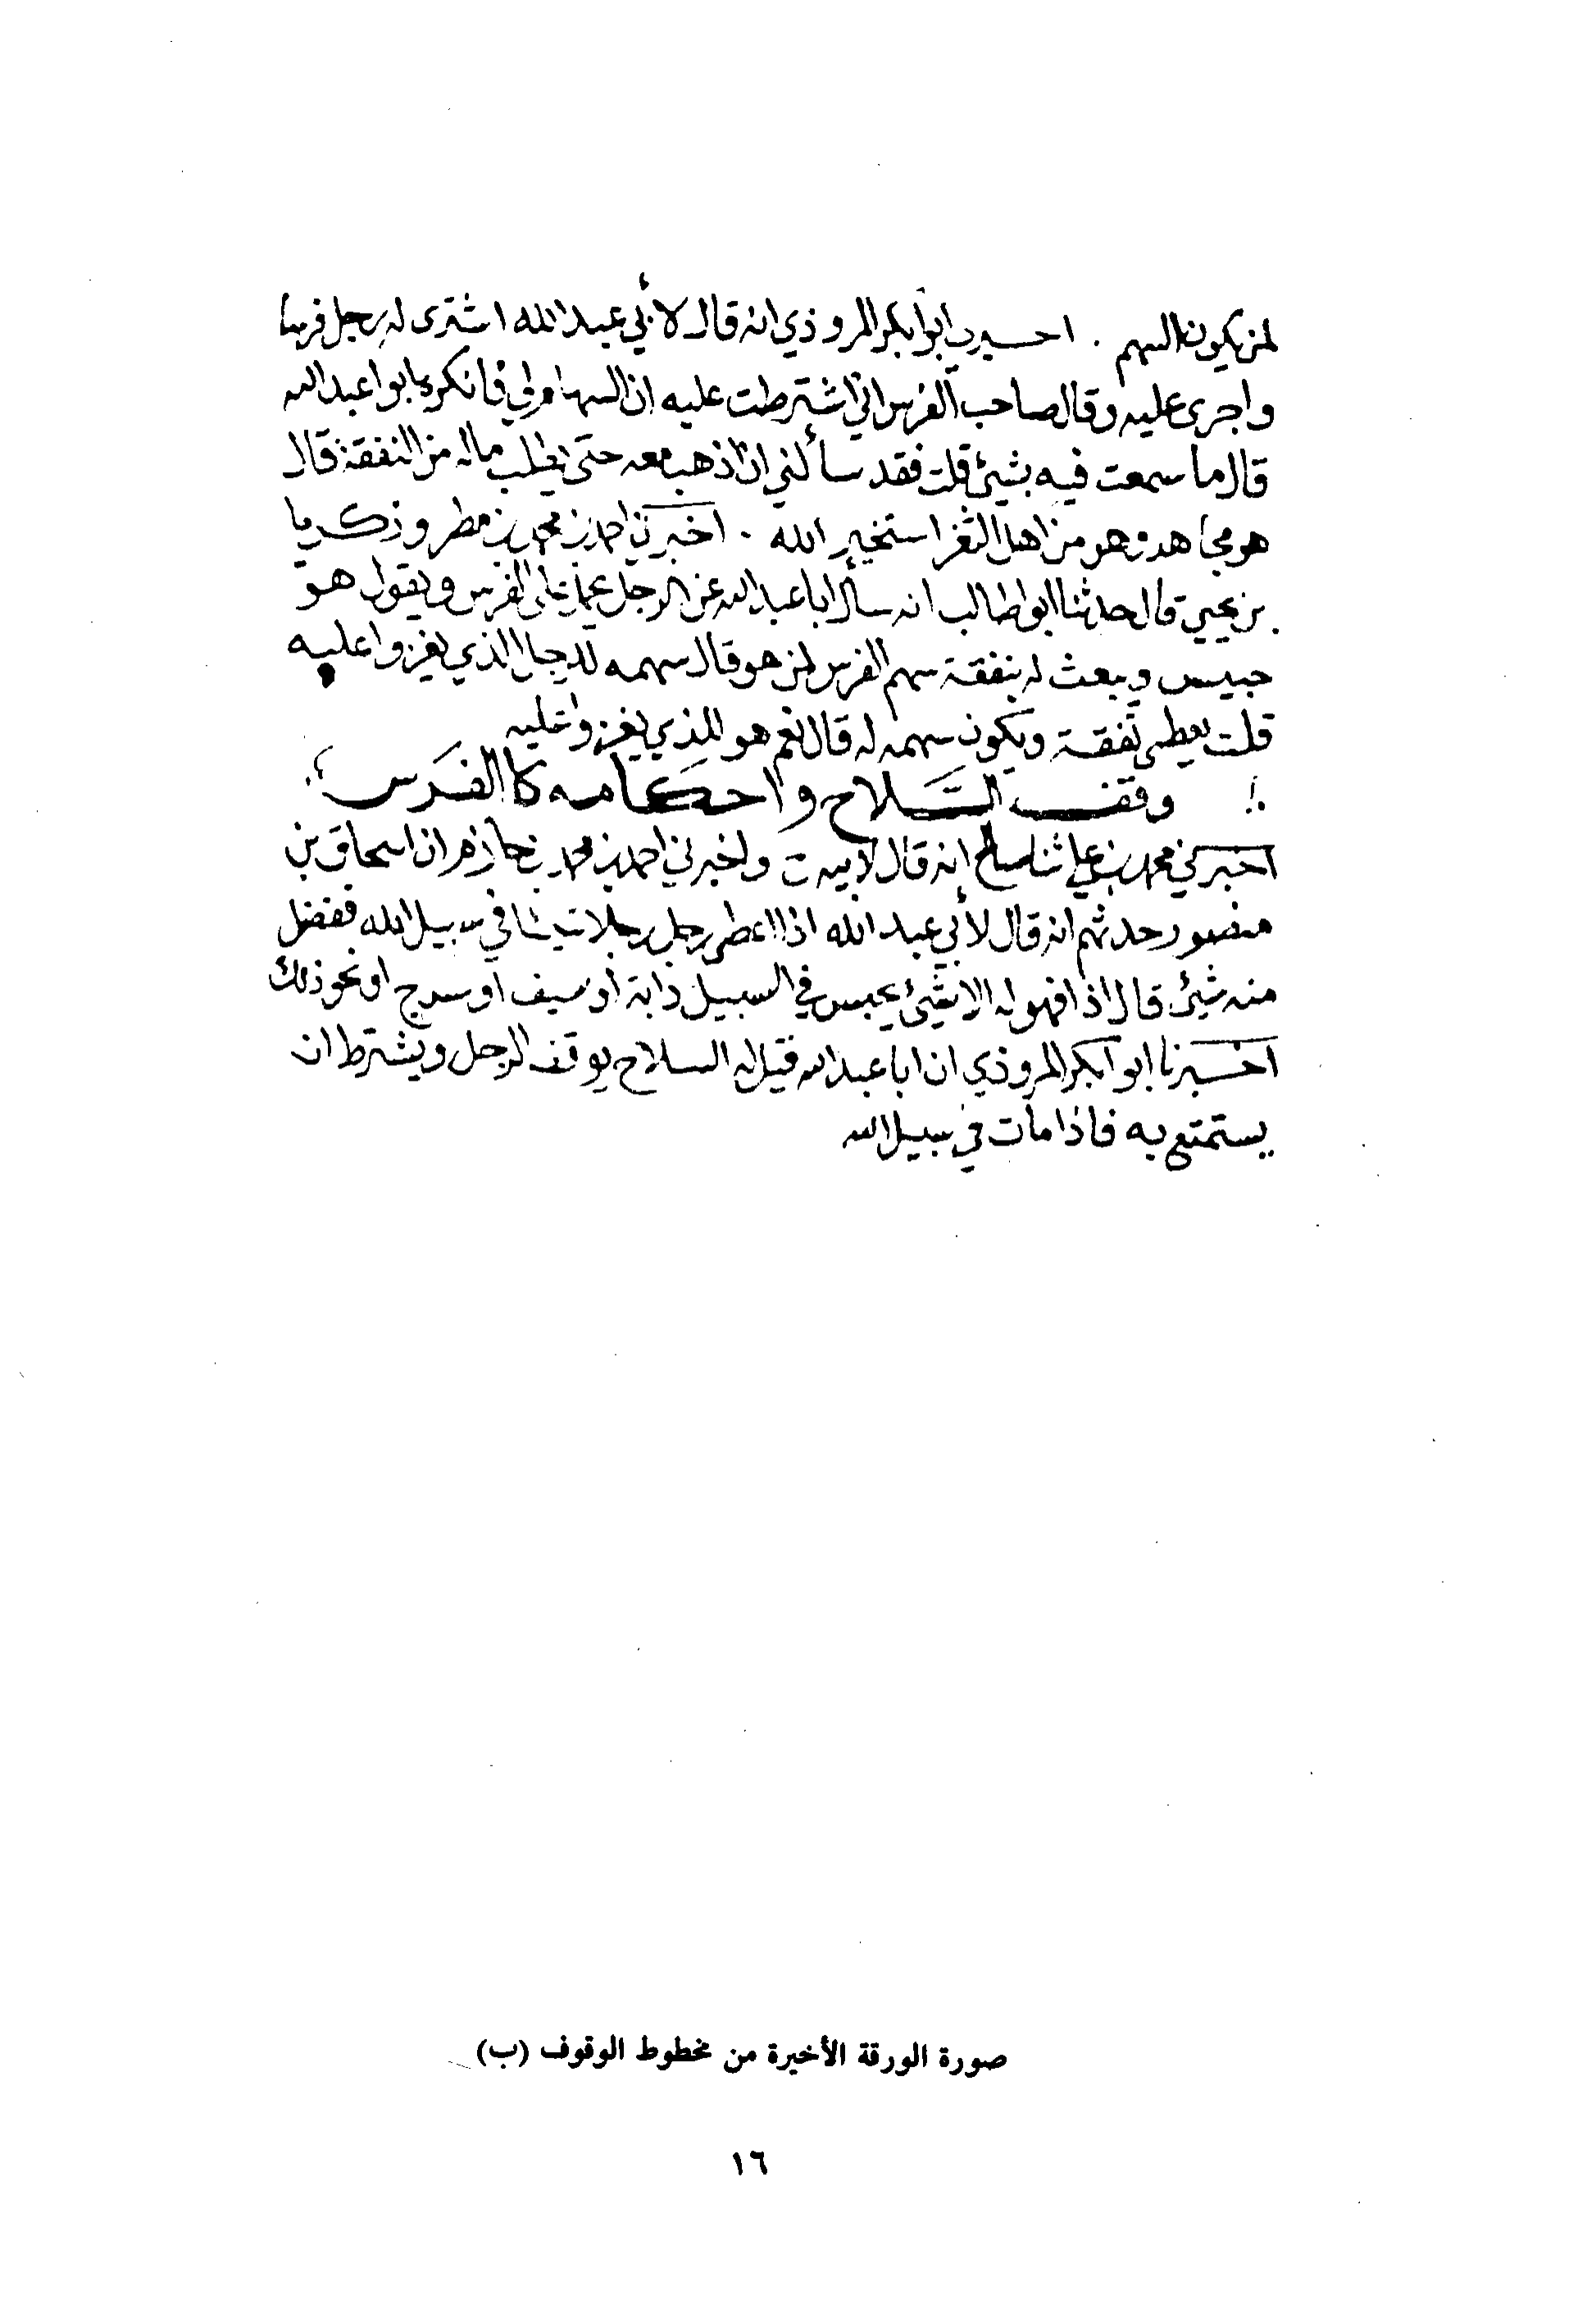 لمن يكون السهم . اخبرني ابوا بكر المروذي انه قال لأبي عبد الله اشترى له رجل فرسا
واجرى عليه وقال صاحب الفرس اني اشترطت عليه ان السهام لي فانكره ابوا عبد الله
قال ما سمعت فيه بشيئ قلت فقد سألني ان اذهب معه حتى يطلب ماله من النفقة قال
هو مجاهد وهو من اهل الثغر استخير الله . اخبرني احمد بن محمد بن مطر وزكريا
بن يحيي قال حدثنا ابوا طالب انه سأل ابا عبد الله عن الرجل يحمل على الفرس ويقول هو
حبيس ويبعث له بنفقة سهم الفرس لمن هو قال سهمه للرجل الذي يغزوا عليه
قلت يعطى نفقة ويكون سهمه له قال نعم هو للذي يغزوا عليه
وقف السَّلاح واحكامه كا الفَرَس
اخبرني محمد بن علي ثنا صالح انه قال لابيه ت واخبرني احمد بن محمد بن حازم ان اسحاق بن
منصور حدثهم انه قال لأبي عبد الله اذا اعطى رجل رجلا شيئا في سبيل الله ففضل
منه شيئ قال اذا فهو له الا شيئ يحبس في السبيل دابة أو سيف او سرج او نحو ذلك
اخبرنا ابوا بكر المروذي ان ابا عبد الله قيل له السلاح يوقف الرجل ويشترط ان
يستمتع به فاذا مات في سبيل الله
صورة الورقة الأخيرة من مخطوط الوقوف (ب)
١٦